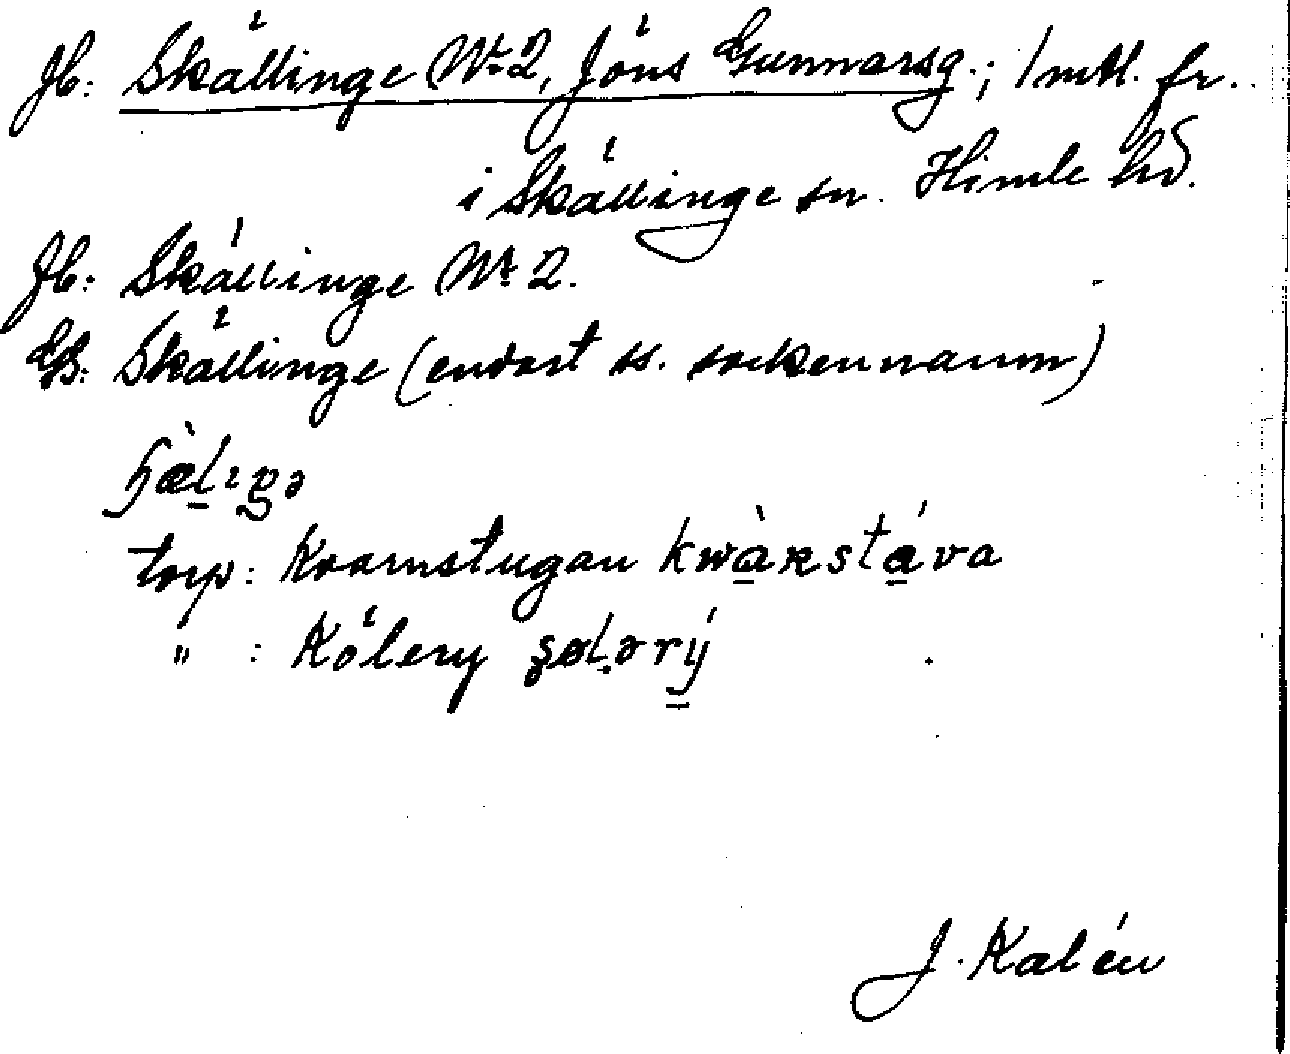 Jb: Skällinge Nr 2, Jöns Gunnarsg.; 1 mtl. fr.
i Skällinge sn. Himle hd.
Jb: Skällinge Nr 2.
GB: Skällinge (endast ss. sockennamn)
ɧæ̀lɪŋə
torp: Kvarnstugan kwàʀstáva
" : Kölery şølərý
J. Kalén